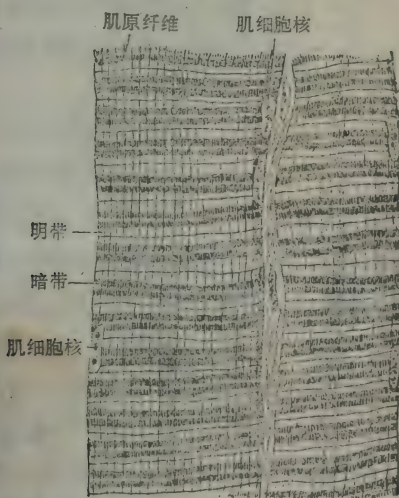 肌原纤维 肌细胞核
明带
暗带
肌细胞核